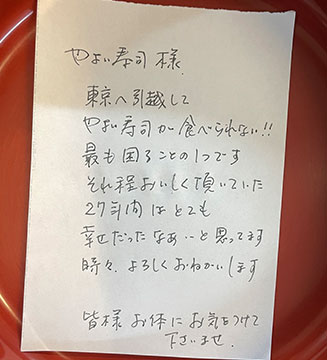 やよい寿司様
東京へ引越して
やよい寿司が食べられない!!
最も困ることの1つです
それ程おいしく頂いていた
27年間はとても
幸せだったなあ…と思ってます
時々、よろしくおねがいします
皆様お体にお気をつけて
下さいませ